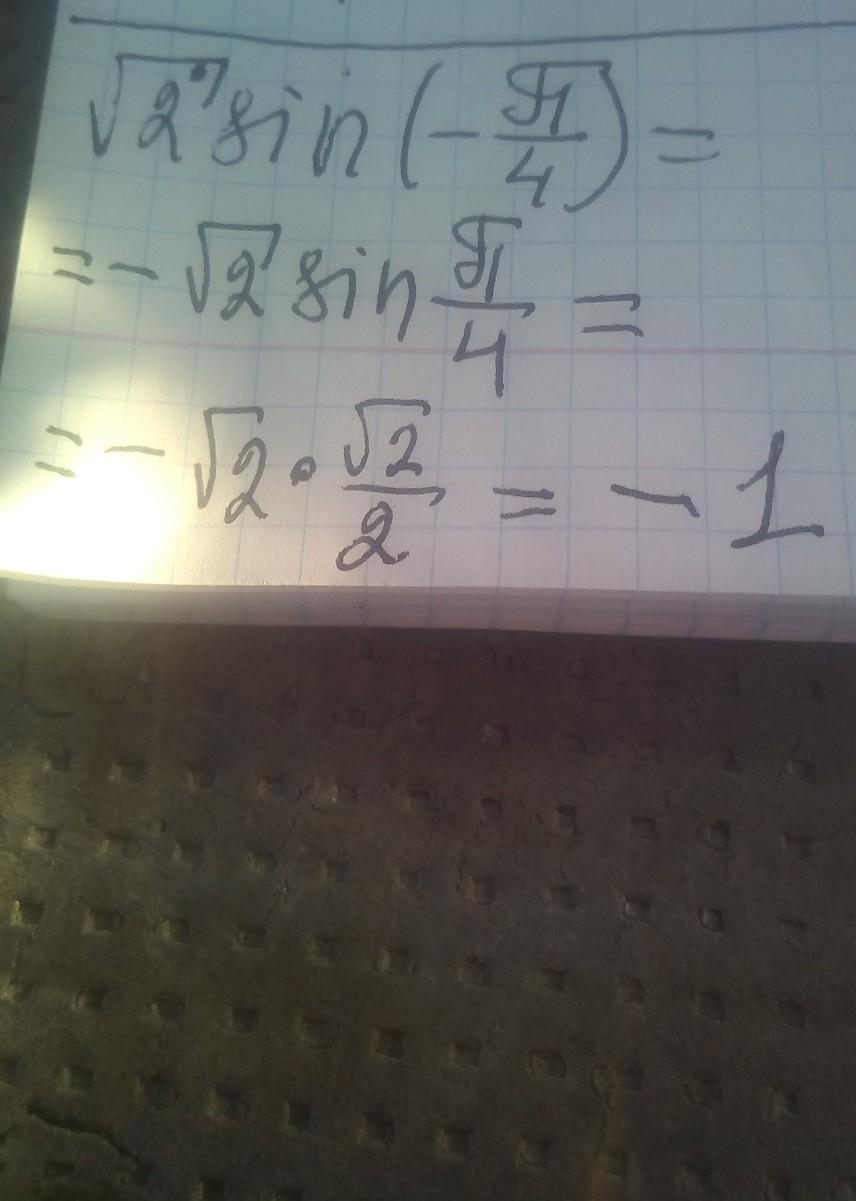 √2 sin(-π/4) =
= - √2 sin π/4 =
= - √2 · √2/2 = - 1